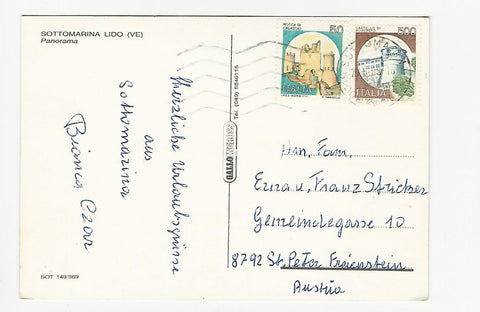 SOTTOMARINA LIDO (VE)
Panorama
Herzliche Urlaubsgrüsse
aus
Sottomarina
Bianca Czar
SOT 149/369
GALLO
Tel. (049) 5840115
ROCCA DI
CALASCIO
50
ITALIA
CASTELLO DI
500
ITALIA
An Fam.
Erna u. Franz Stricker
Gemeindegasse 10
8792 St. Peter Freienstein
Austria